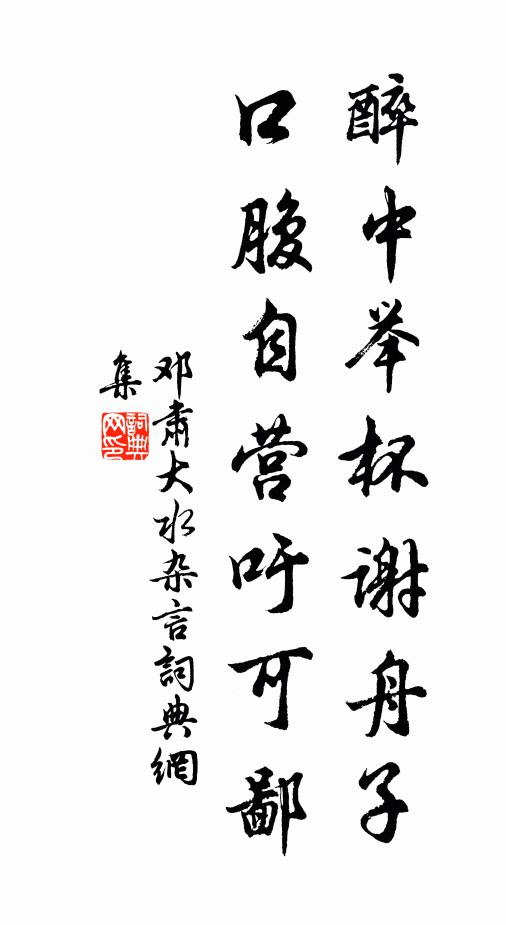 醉中举杯谢舟子
口腹自营吁可鄙
邓肃大水杂言詞典網
集
詞典网印